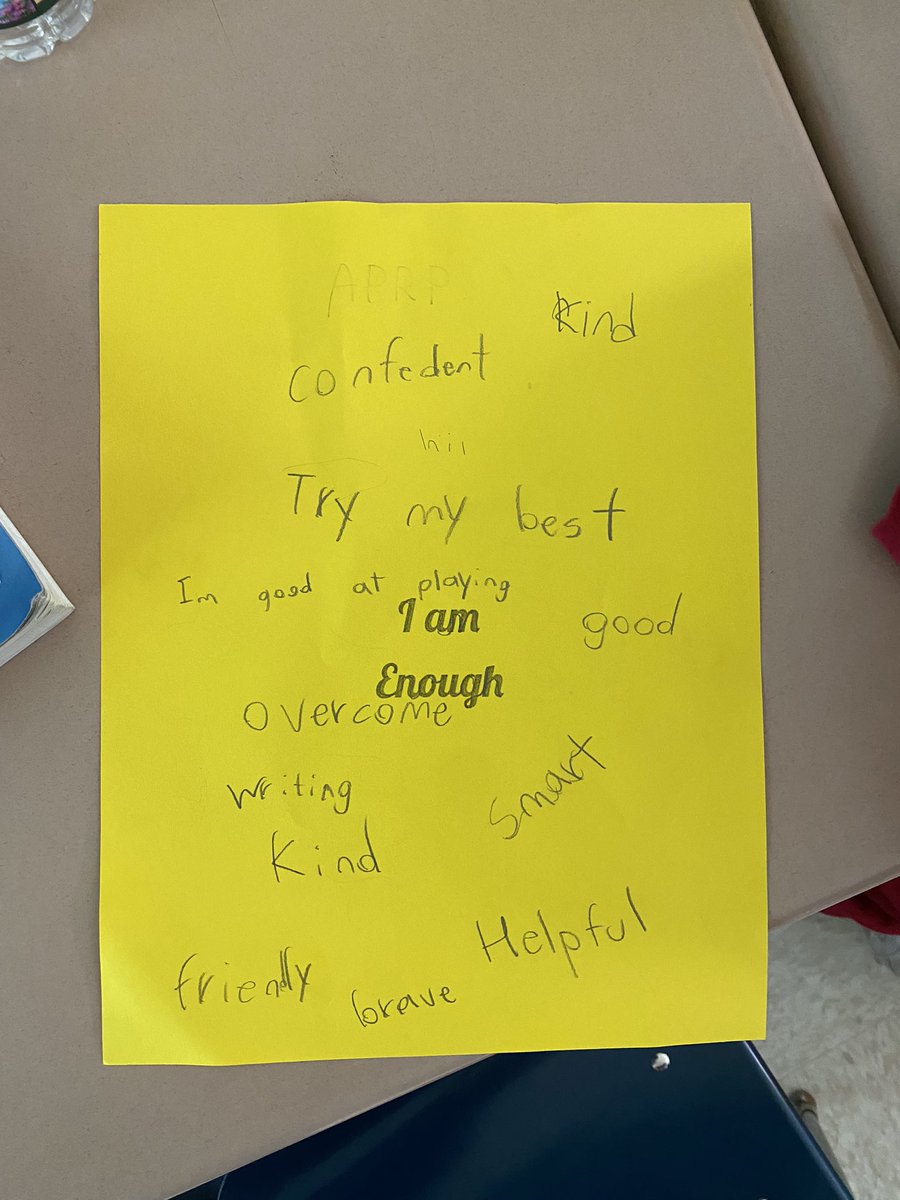 Kind
confedent
Try my best
Im good at playing
I am
good
Enough
overcome
writing
smart
Kind
Helpful
friendly
brave